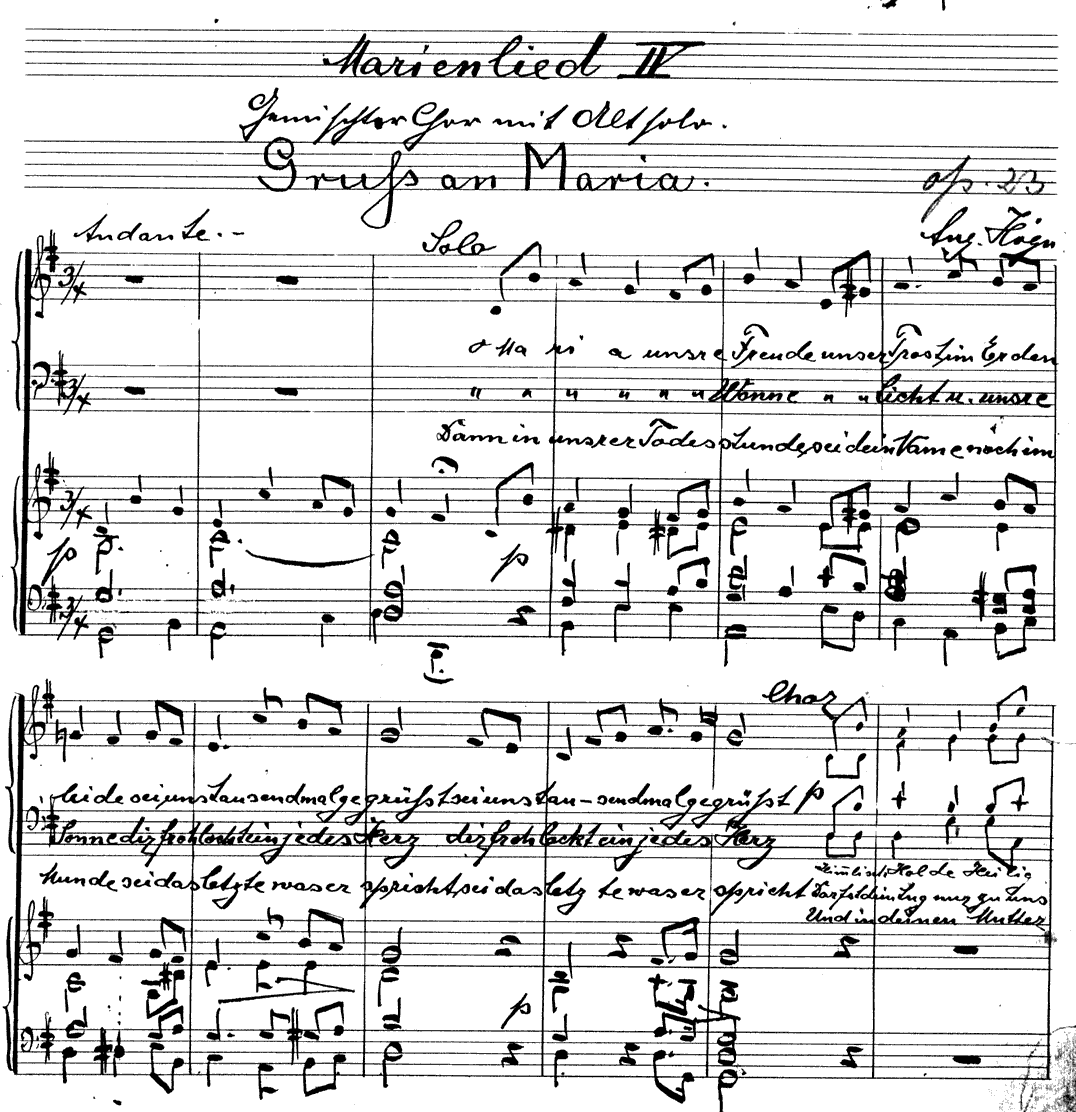 Marienlied IV
Gemischter Chor mit Altsolo.
Gruß an Maria.
op. 23
Andante.-
Solo
Aug. Högn
3/4
3/4
o Ma ri a unsre Freude unser Trost im Erden
" " " " " " Wonne " " Licht u. unsre
Dann in unsrer Todesstunde sei dein Name noch im
3/4
p
p
3/4
Chor
leide sei uns tausendmal gegrüßt sei uns tau-sendmal gegrüßt p
Sonne dir frohlockt ein jedes Herz dir frohlockt ein jedes Herz
Munde sei das letzte was er spricht sei das letz te was er spricht
Holde
Und in deinen Mutter
p